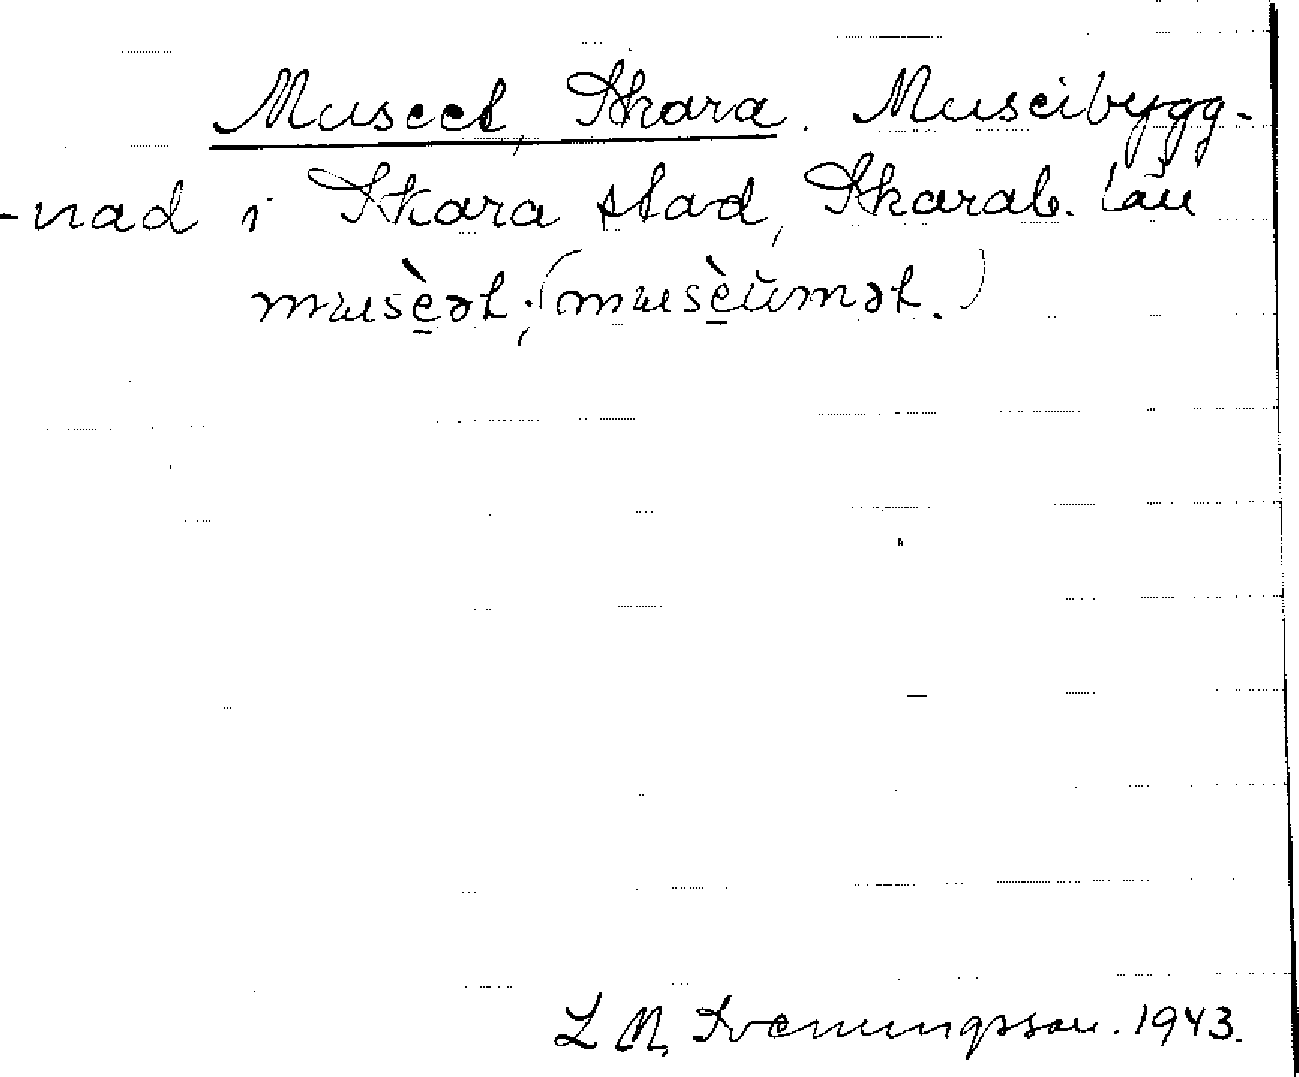 Museet, Skara. Museibygg-
-nad i Skara stad, Skarab. län
musèət; (musèumət.)
L M, Svenningsson. 1943.